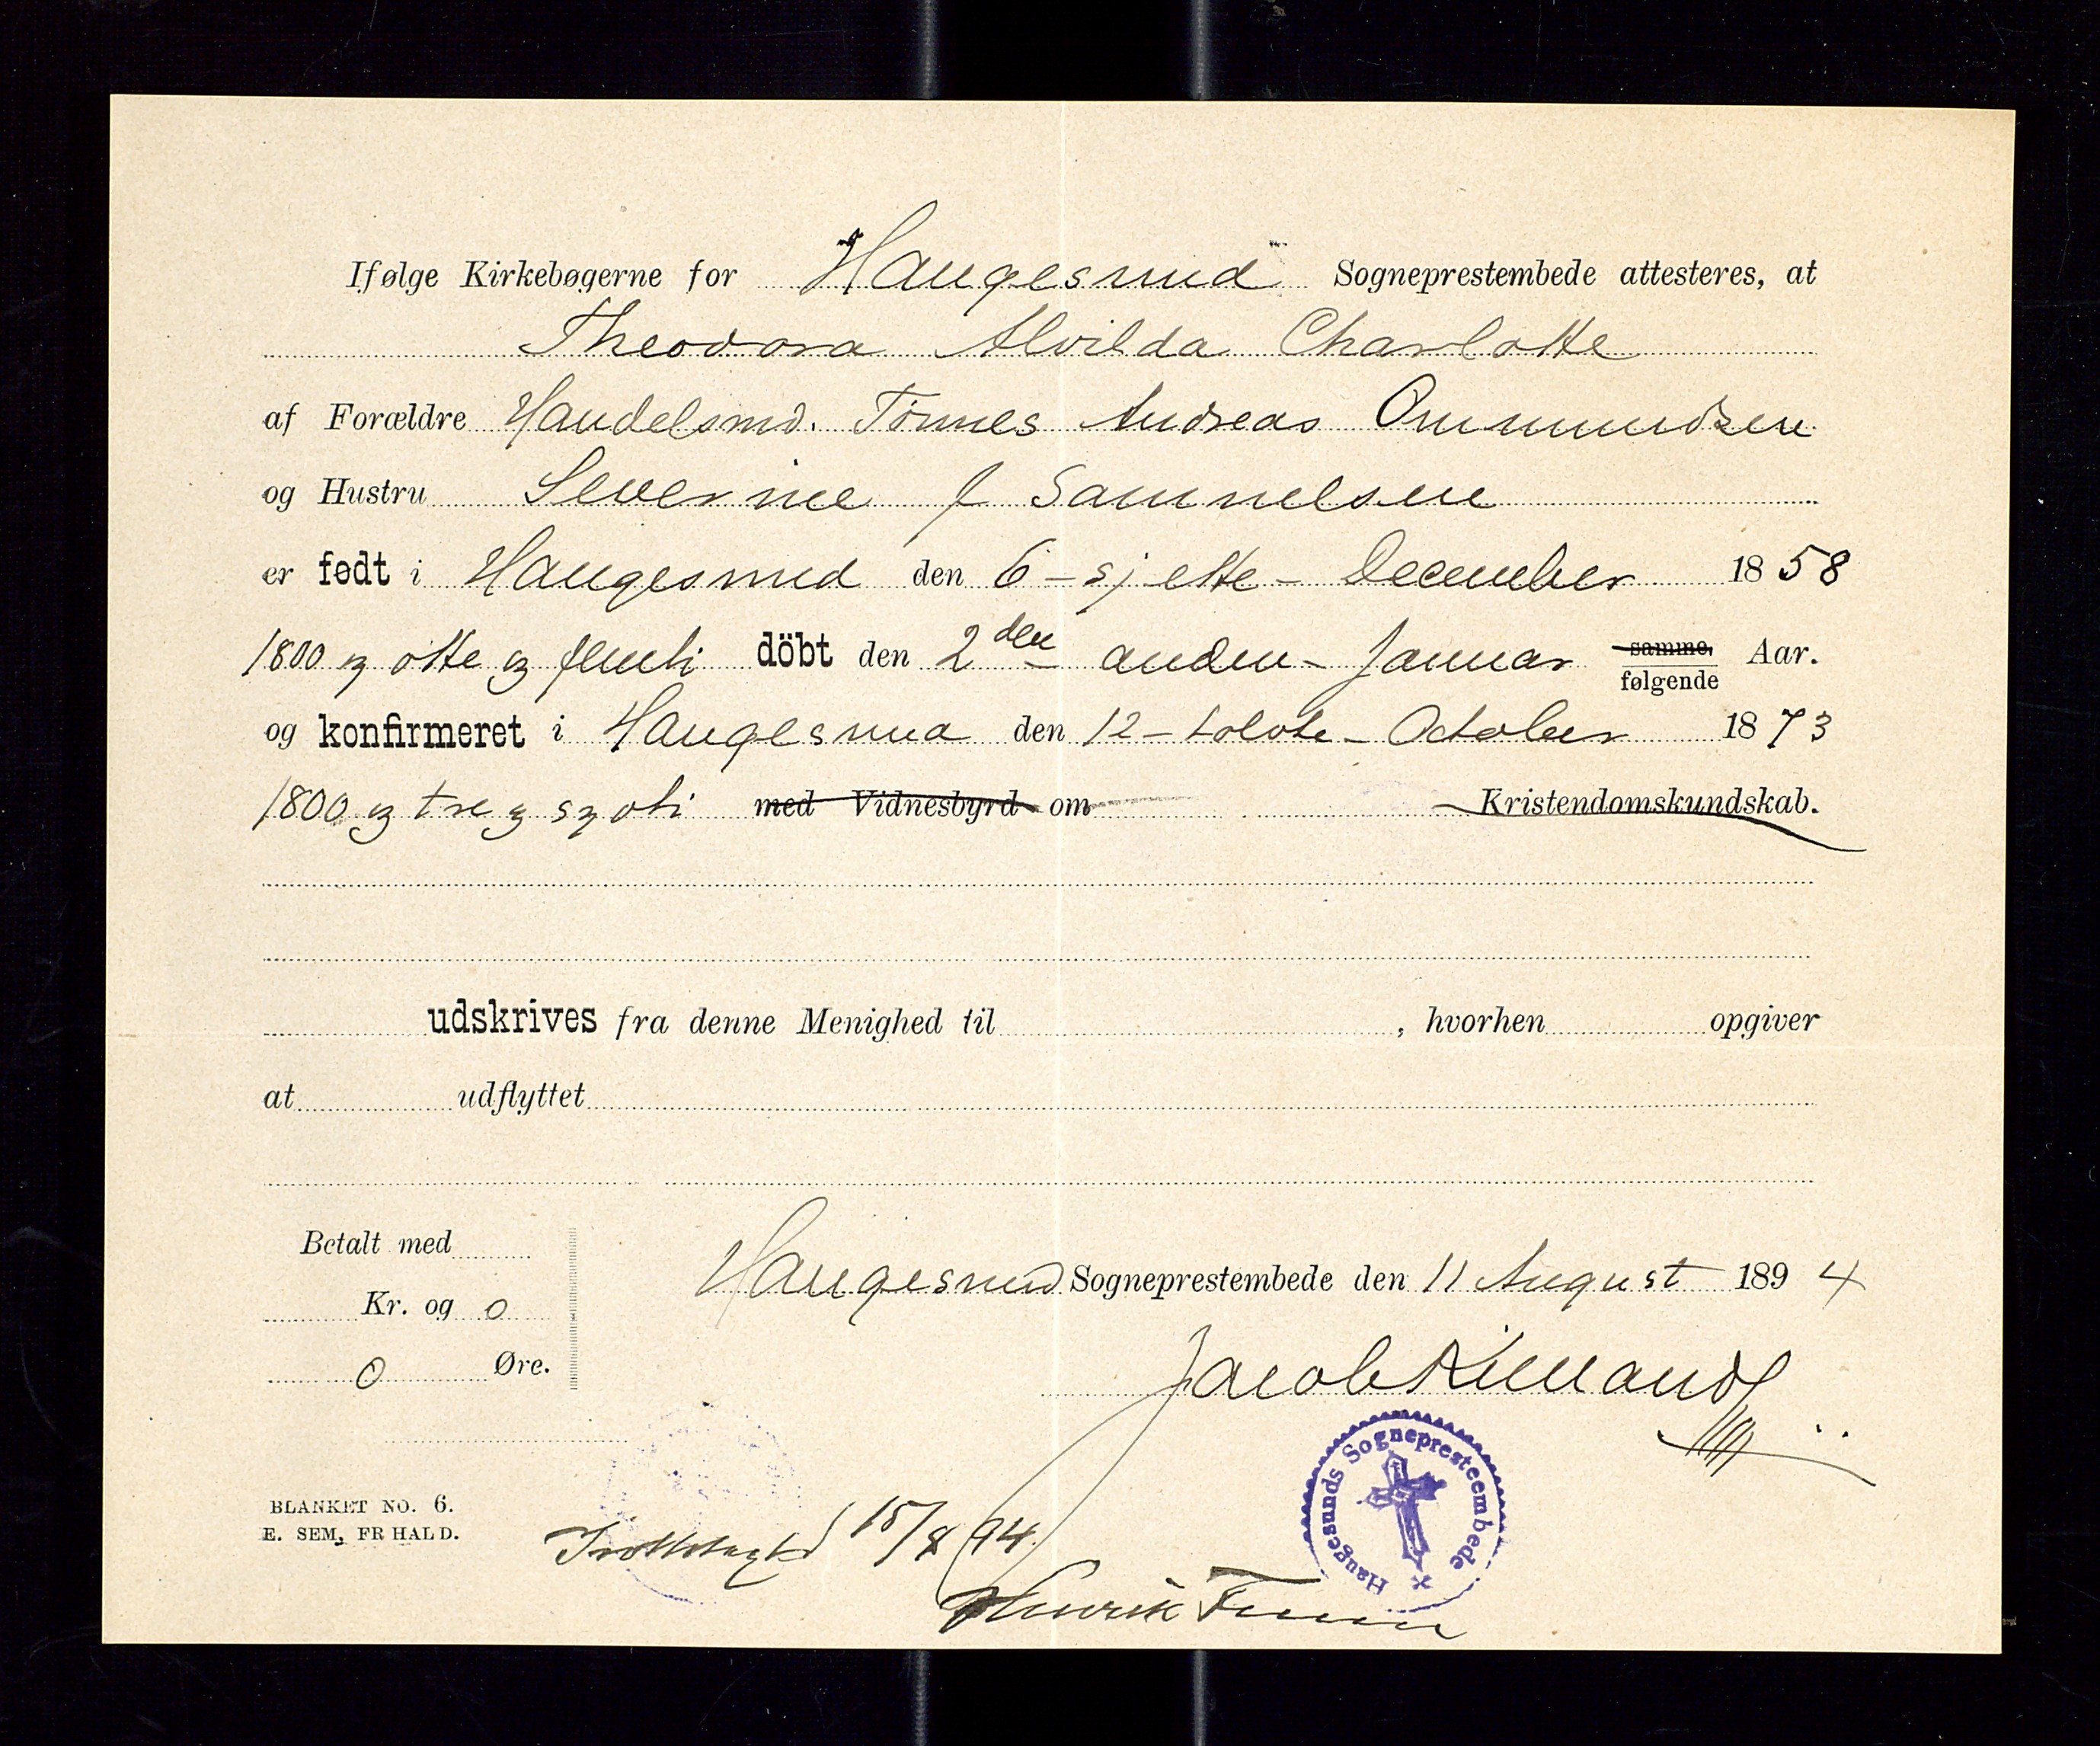 Ifølge Kirkebøgerne for Haugesund Sogneprestembede attesteres, at
Theodora Alvilda Charlotte
af Forældre Handelsmd. Tønnes Andreas Ommundsen
og Hustru Severine f Samuelsen
er født i Haugesund den 6 - sjette - December 1858
1800 og otte og femti döbt den 2den anden - Januar samme, følgende Aar.
og konfirmeret i Haugesund den 12 - tolvte - October 1873
1800 og tre og syvti med Vidnesbyrd om Kristendomskundskab.
udskrives fra denne Menighed til , hvorhen opgiver
at udflyttet
Betalt med
Kr. og 0
0 Øre.
Haugesund Sogneprestembede den 11 August 1894
Jacob Kielland
Haugesunds Sognepresteembede
BLANKET NO. 6.
E. SEM, FRHALD.
15/8 94.
Henrik